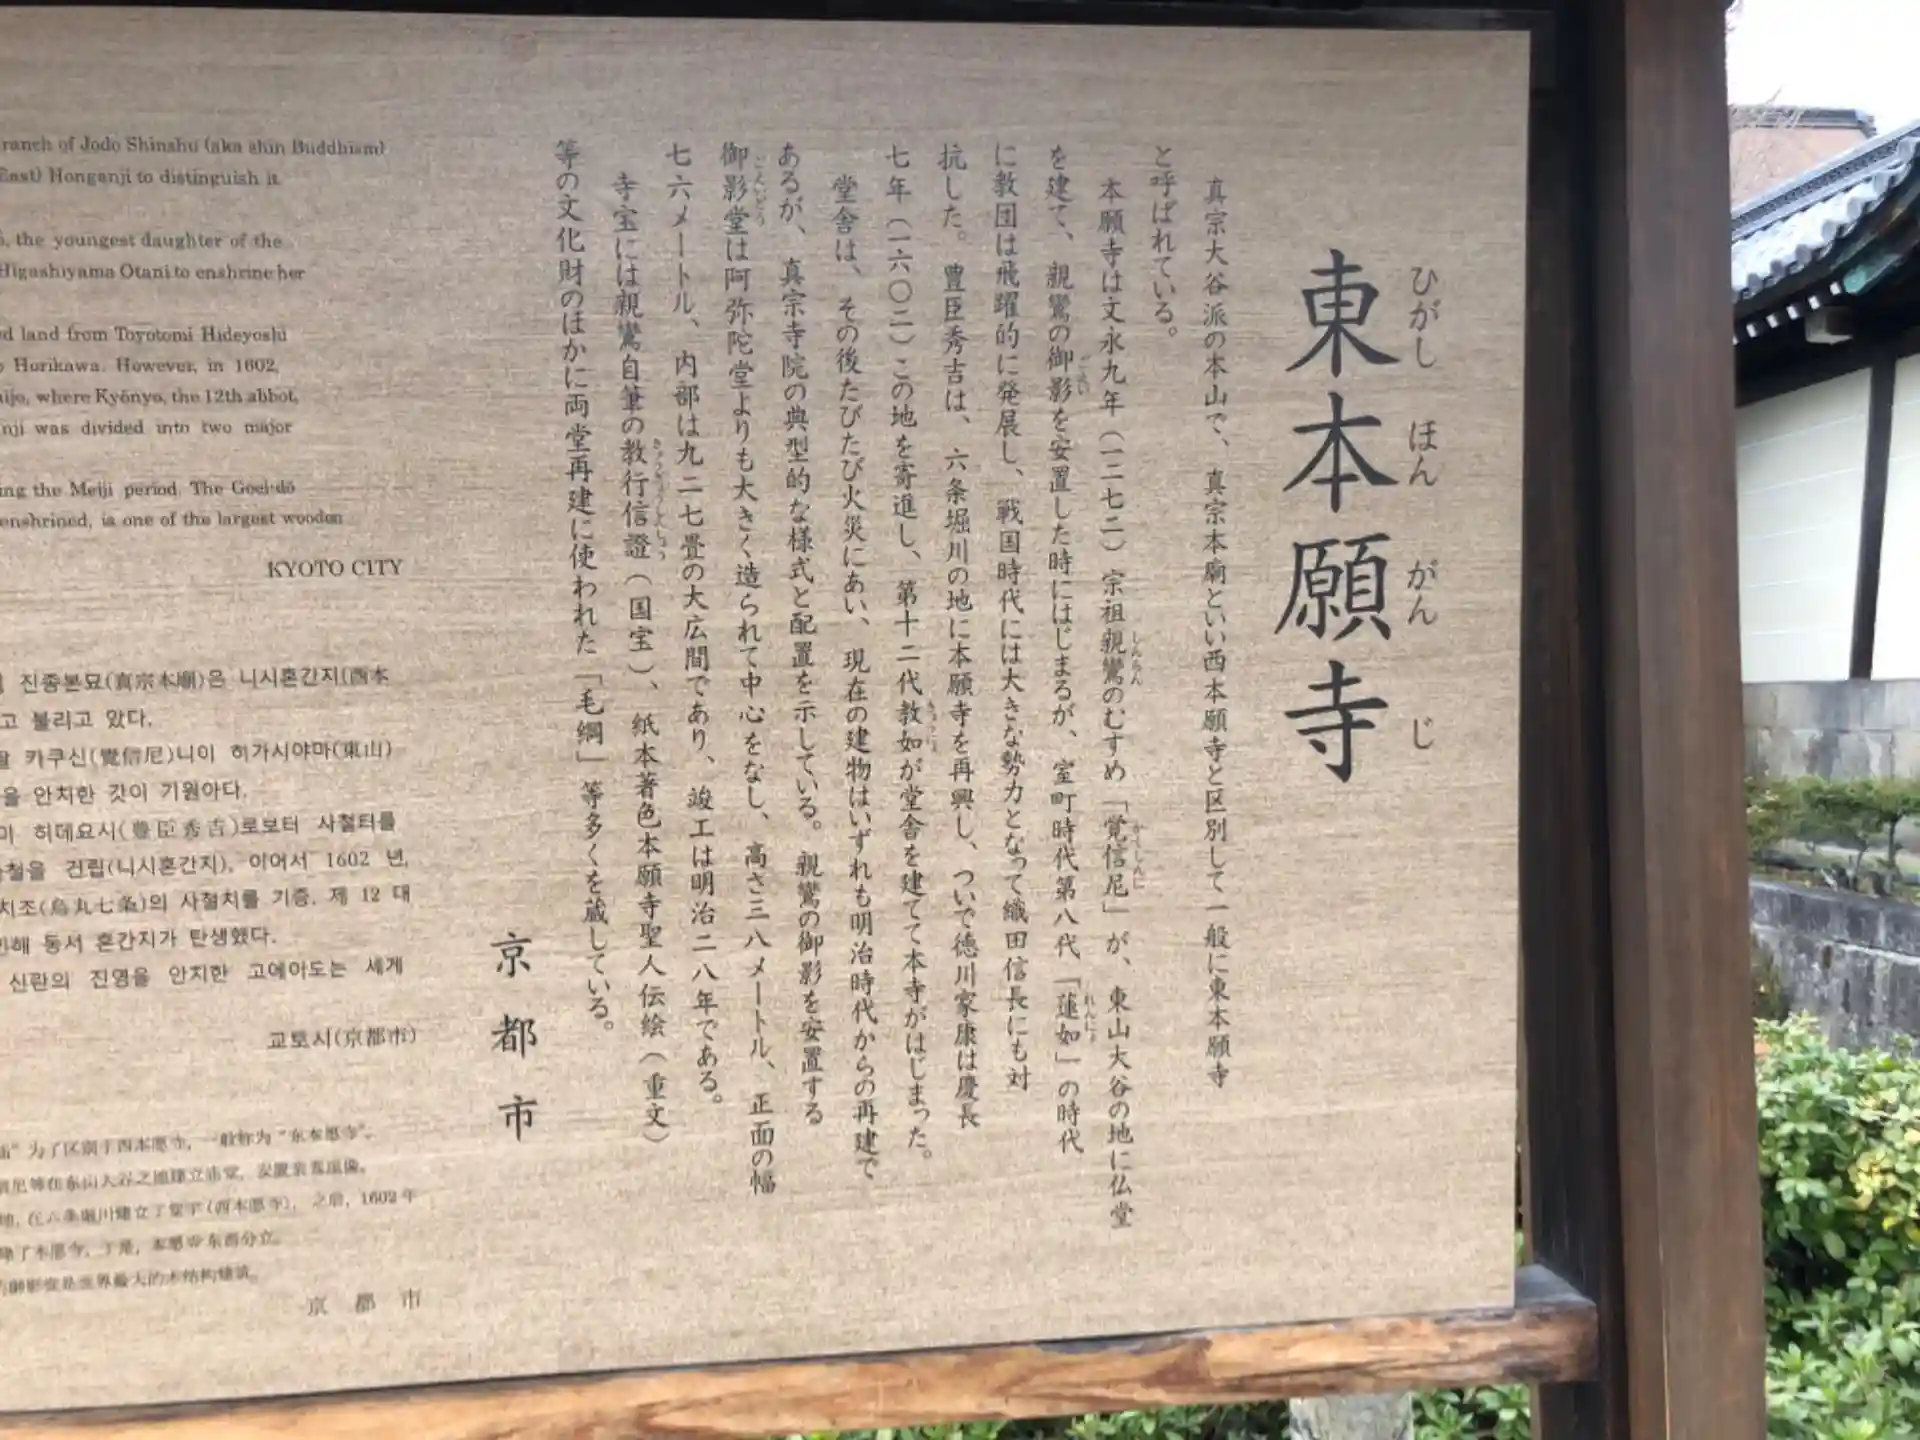 東本願寺
ひがし ほん がん じ
真宗大谷派の本山で、真宗本廟といい西本願寺と区別して一般に東本願寺
と呼ばれている。
本願寺は文永九年（一二七二）宗祖親鸞のむすめ「覚信尼」が、東山大谷の地に仏堂
しんらん かくしんに
を建て、親鸞の御影を安置した時にはじまるが、室町時代第八代「蓮如」の時代
ごえい れんにょ
に教団は飛躍的に発展し、戦国時代には大きな勢力となって織田信長にも対
抗した。豊臣秀吉は、六条堀川の地に本願寺を再興し、ついで徳川家康は慶長
七年（一六〇二）この地を寄進し、第十二代教如が堂舎を建てて本寺がはじまった。
きょうにょ
堂舎は、その後たびたび火災にあい、現在の建物はいずれも明治時代からの再建で
あるが、真宗寺院の典型的な様式と配置を示している。親鸞の御影を安置する
御影堂は阿弥陀堂よりも大きく造られて中心をなし、高さ三八メートル、正面の幅
ごえいどう
七六メートル、内部は九二七畳の大広間であり、竣工は明治二八年である。
寺宝には親鸞自筆の教行信證（国宝）、紙本著色本願寺聖人伝絵（重文）
きょうぎょうしんしょう
等の文化財のほかに両堂再建に使われた「毛綱」等多くを蔵している。
京都市
ranch of Jodo Shinshu (aka shin Buddhism)
East) Honganji to distinguish it
, the youngest daughter of the
Higashiyama Otani to enshrine her
ed land from Toyotomi Hideyoshi
Horikawa. However, in 1602,
ijo, where Kyōnyo, the 12th abbot,
nji was divided into two major
ing the Meiji period. The Goei-dō
enshrined, is one of the largest wooden
KYOTO CITY
진종본묘(真宗本廟)은 니시혼간지(西本
고 불리고 있다.
카쿠신(覺信尼)니이 히가시야마(東山)
을 안치한 것이 기원이다.
히데요시(豊臣秀吉)로보터 사철터를
건립(니시혼간지), 이어서 1602 년,
치조(烏丸七条)의 사철치를 기증, 제 12 대
인해 동서 혼간지가 탄생했다.
신란의 진영을 안치한 고에이도는 세게
교토시(京都市)
为了区别于西本愿寺，一般称为“东本愿寺”。
等在东山大谷之地建立庙堂，安置亲鸾遗像。
地，在六条堀川建立了堂宇（西本愿寺），之后，1602 年
了本愿寺，于是，本愿寺东西分立。
御影堂是世界最大的木结构建筑。
京都市